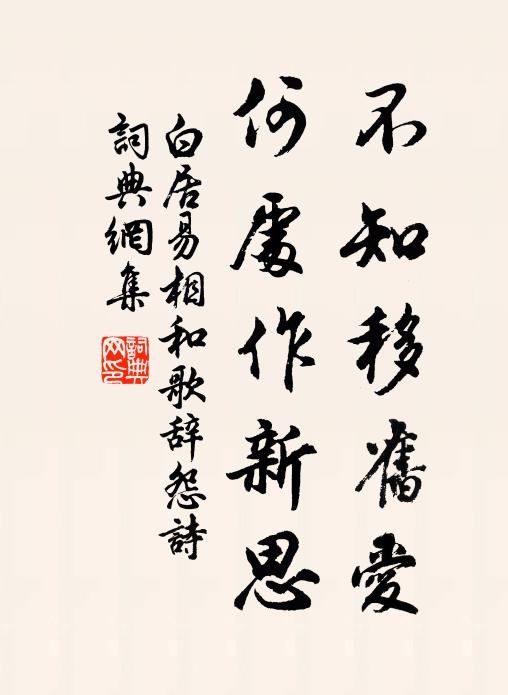 不知移舊愛
何處作新思
白居易相和歌辞怨詩
詞典網集
詞典网印